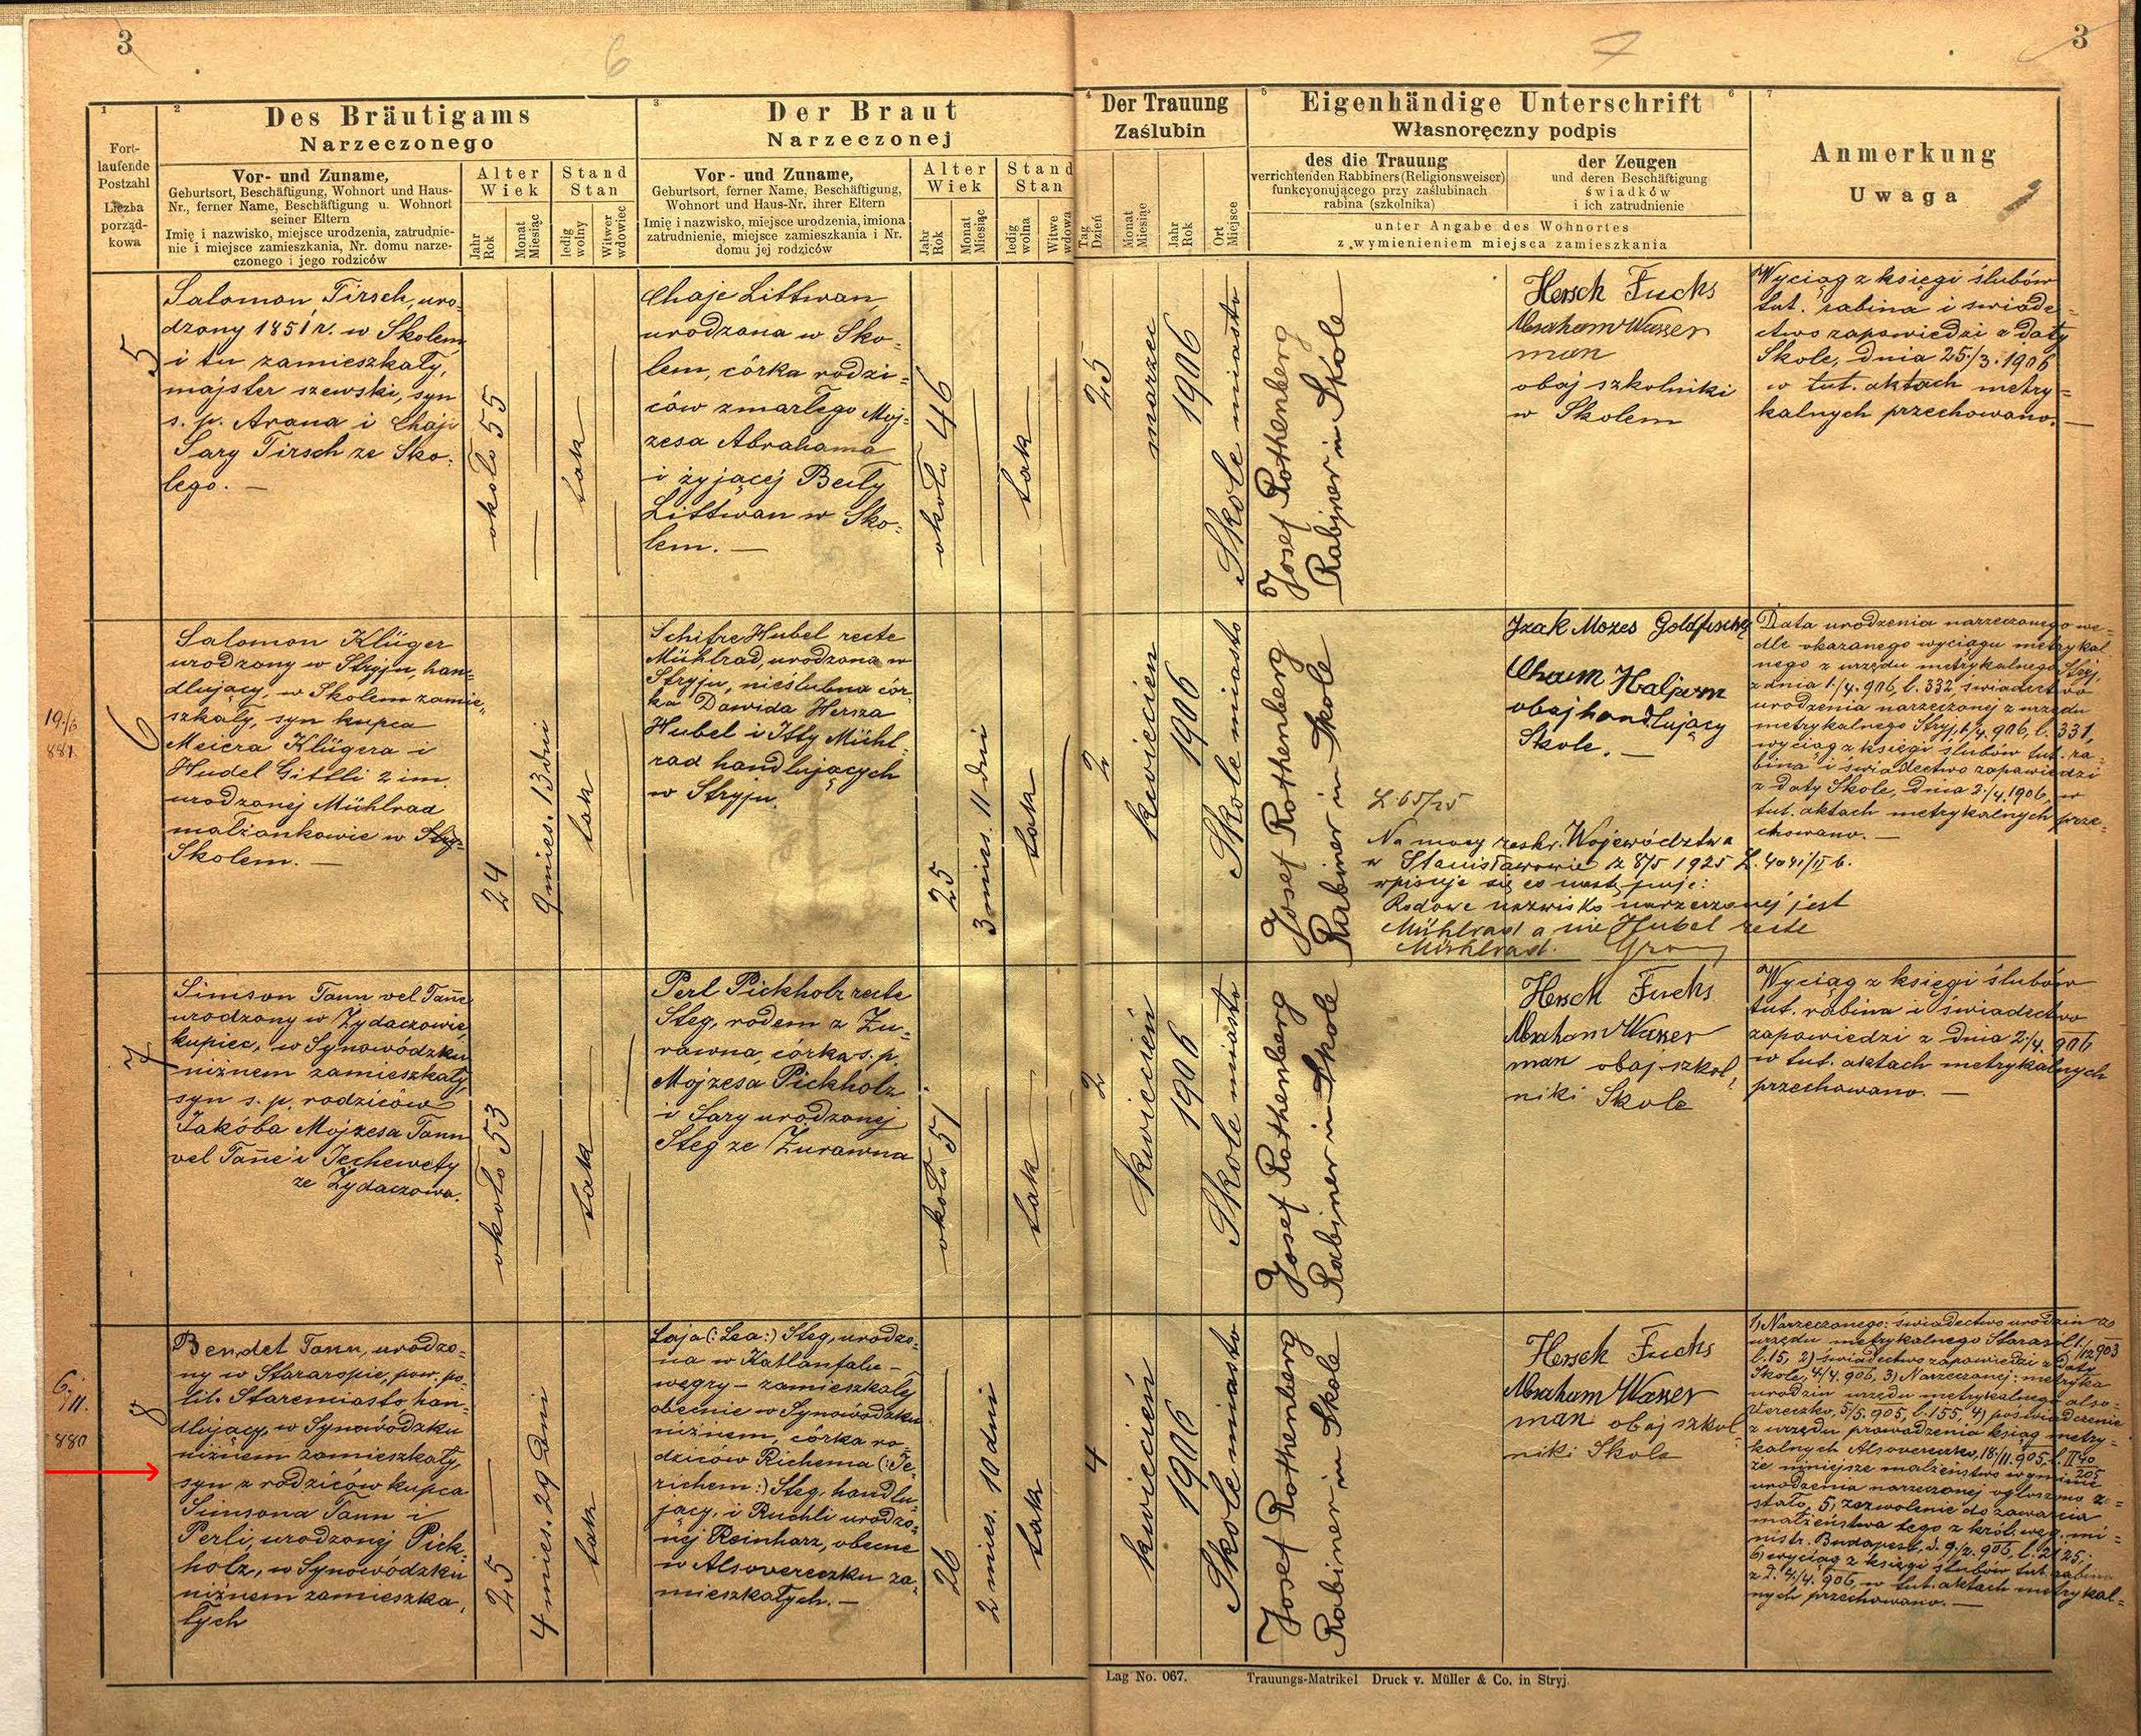 3
6
7
3
1
Fort-
laufende
Postzahl
Liczba
porząd-
kowa
2
Des Bräutigams
Narzeczonego
Vor- und Zuname,
Geburtsort, Beschäftigung, Wohnort und Haus-
Nr., ferner Name, Beschäftigung u. Wohnort
seiner Eltern
Imię i nazwisko, miejsce urodzenia, zatrudnie-
nie i miejsce zamieszkania, Nr. domu narze-
czonego i jego rodziców
Alter
Wiek
Jahr
Rok
Monat
Miesiąc
Stand
Stan
ledig
wolny
Witwer
wdowiec
3
Der Braut
Narzeczonej
Vor- und Zuname,
Geburtsort, ferner Name, Beschäftigung,
Wohnort und Haus-Nr. ihrer Eltern
Imię i nazwisko, miejsce urodzenia, imiona
zatrudnienie, miejsce zamieszkania i Nr.
domu jej rodziców
Alter
Wiek
Jahr
Rok
Monat
Miesiąc
Stand
Stan
ledig
wolna
Witwe
wdowa
4
Der Trauung
Zaślubin
Tag
Dzień
Monat
Miesiąc
Jahr
Rok
Ort
Miejsce
5
Eigenhändige Unterschrift
6
Własnoręczny podpis
des die Trauung
verrichtenden Rabbiners (Religionsweiser)
funkcyonującego przy zaślubinach
rabina (szkolnika)
der Zeugen
und deren Beschäftigung
świadków
i ich zatrudnienie
unter Angabe des Wohnortes
z wymienieniem miejsca zamieszkania
7
Anmerkung
Uwaga
5
Salomon Tirsch, uro-
dzony 1851 r. w Skolem
i tu zamieszkały,
majster szewski, syn
s. p. Arana i Chaji
Sary Tirsch ze Sko-
lego. —
około 55
tak
Chaje Littwan,
urodzona w Sko-
lem, córka rodzi-
ców zmarłego Moj-
zesa Abrahama
i żyjącej Beily
Littwan w Sko-
lem. —
około 46
tak
25
marzec
1906
Skole miasto
Josef Rothenberg
Rabiner in Skole
Hersch Fuchs
Abraham Wasser
man
obaj szkolniki
w Skolem
Wyciąg z księgi ślubów
tut. rabina i świade-
ctwo zapowiedzi z daty
Skole, dnia 25./3. 1906
w tut. aktach metry-
kalnych przechowano. —
19./6
881.
6
Salomon Klüger
urodzony w Stryju, han-
dlujący, w Skolem zamie-
szkały, syn kupca
Meiera Klügera i
Hudel Gittli z im.
urodzonej Mühlrad
małżonkowie w Stry-
Skolem. —
24
9 mies. 13 dni
tak
Schifre Hubel recte
Mühlrad, urodzona w
Stryju, nieślubna cór-
ka Dawida Hersza
Hubel i Itty Mühl-
rad handlujących
w Stryju.
25
3 mies. 11 dni
tak
2
kwiecień
1906
Skole miasto
Josef Rothenberg
Rabiner in Skole
Izak Mozes Goldfischer
Chaim Halpern
obaj handlujący
Skole. —
Data urodzenia narzeczonego we-
dle okazanego wyciągu metrykal-
nego z urzędu metrykalnego Stryj,
z dnia 1./4. 906, l. 332, świadectwo
urodzenia narzeczonej z urzędu
metrykalnego Stryj, 1/4. 906, l. 331,
wyciąg z księgi ślubów tut. ra-
bina i świadectwo zapowiedzi
z daty Skole, dnia 2./4. 1906, w
tut. aktach metrykalnych prze-
chowano. —
L. 65/25
Na mocy reskr. Województwa
w Stanisławowie z 8/5 1925 L. 4041/II b.
wpisuje się co następuje:
Rodowe nazwisko narzeczonej jest
Mühlrad a nie Hubel recte
Mühlrad.
7
Simson Tann vel Tanne
urodzony w Żydaczowie,
kupiec, w Synowódzku
niżnem zamieszkały,
syn s. p. rodziców
Jakóba Mojzesa Tann
vel Tanne i Jechewety
ze Żydaczowa.
około 53
tak
Perl Pickholz recte
Steg, rodem z Żu-
rawna, córka s. p.
Mojzesa Pickholz
i Sary urodzonej
Steg ze Żurawna
około 51
tak
2
kwiecień
1906
Skole miasto
Josef Rothenberg
Rabiner in Skole
Hersch Fuchs
Abraham Wasser
man obaj szkol-
niki Skole
Wyciąg z księgi ślubów
tut. rabina i świadectwo
zapowiedzi z dnia 2./4. 906
w tut. aktach metrykalnych
przechowano. —
6./11.
880
8
Bendet Tann, urodzo-
ny w Stararopie, pow. po-
lit. Staremiasto, han-
dlujący, w Synowódzku
niżnem zamieszkały,
syn z rodziców kupca
Simsona Tann i
Perli, urodzonej Pick-
holz, w Synowódzku
niżnem zamieszka-
łych
25
4 mies. 29 dni
tak
Łaja (: Lea :) Steg, urodzo-
na w Katlanfalu –
węgry – zamieszkały
obecnie w Synowódzku
niżnem, córka ro-
dziców Richema (: Je-
richem :) Steg, handlu-
jący, i Ruchli urodzo-
nej Reinharz, obecne
w Alsovereczku za-
mieszkałych. —
26
2 mies. 10 dni
tak
4
kwiecień
1906
Skole miasto
Josef Rothenberg
Rabiner in Skole
Hersch Fuchs
Abraham Wasser
man obaj szkol-
niki Skole
1) Narzeczonego: świadectwo urodzin ze
urzędu metrykalnego Starasól 1/12 903
l. 15, 2) świadectwo zapowiedzi z daty
Skole, 4/4. 906, 3) Narzeczonej: metryka
urodzin urzędu metrykalnego also-
Vereczko, 5/5. 905, l. 155, 4) poświadczenie
z urzędu prowadzenia ksiąg metry-
kalnych Alsovereczko, 18/11. 905, l. II 40/205
że niniejsze małżeństwo w gminie
urodzenia narzeczonej ogłoszono zo-
stało, 5) zezwolenie do zawarcia
małżeństwa tego z król. węg. mi-
nistr. Budapest, d. 9./2. 906, l. 2125,
6) wyciąg z księgi ślubów tut. rabina
z d. 4./4. 906, w tut. aktach metrykal-
nych przechowano. —
Lag No. 067.
Trauungs-Matrikel Druck v. Müller & Co. in Stryj